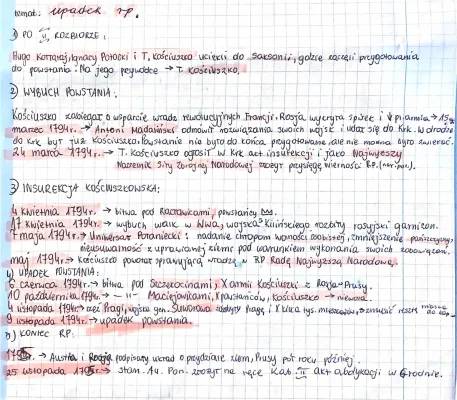 temat: upadek rp.
1) PO II ROZBIORZE:
Hugo Kołłątaj, Ignacy Potocki i T. Kościuszko uciekli do Saksonii, gdzie zaczęli przygotowania
do powstania. Na jego przywódcę → T. Kościuszko.
2) WYBUCH POWSTANIA:
Kościuszko zabiegał o wsparcie władz rewolucyjnych Francji, Rosja wykryła spisek i
marzec 1794r. → Antoni Madaliński odmówił rozwiązania swoich wojsk i udał się do Krk. W drodze
do Krk był już Kościuszko. Powstanie nie było do końca przygotowane, ale nie można było zwlekać.
24 marca 1794r. → T. Kościuszko ogłosił w Krk akt insurekcji i jako Najwyższy
Naczelnik Siły Zbrojnej Narodowej złożył przysięgę wierności RP.
3) INSUREKCJA KOŚCIUSZKOWSKA:
4 kwietnia 1794r. → bitwa pod Racławicami, powstańcy
17 kwietnia 1794r. → wybuch walk w Wwa, wojska Kilińskiego rozbiły rosyjski garnizon.
7 maja 1794r. → Uniwersał Połaniecki: nadanie chłopom wolności osobistej, zmniejszenie pańszczyzny,
nieusuwalność z uprawianej ziemi pod warunkiem wykonania swoich zobowiązań.
maj 1794r. → Kościuszko powołał sprawującą władzę w RP Radę Najwyższą Narodową.
4) UPADEK POWSTANIA:
6 czerwca 1794r. → bitwa pod Szczekocinami, X armii Kościuszki z Rosją + Prusy.
10 października 1794r. → -"- Maciejowicami, X powstańców, Kościuszko → niewola.
4 listopada 1794r. → rzeź Pragi, wojska gen. Suworowa zdobyły Pragę, X kilka tys. mieszkańców, zmusić resztę
9 listopada 1794r. → upadek powstania.
5) KONIEC RP:
1795r. → Austria i Rosja podpisały układ o podziale ziem, Prusy pół roku później.
25 listopada 1795r. → Stan. Au. Pon. złożył na ręce Kat. II akt abdykacji w Grodnie.